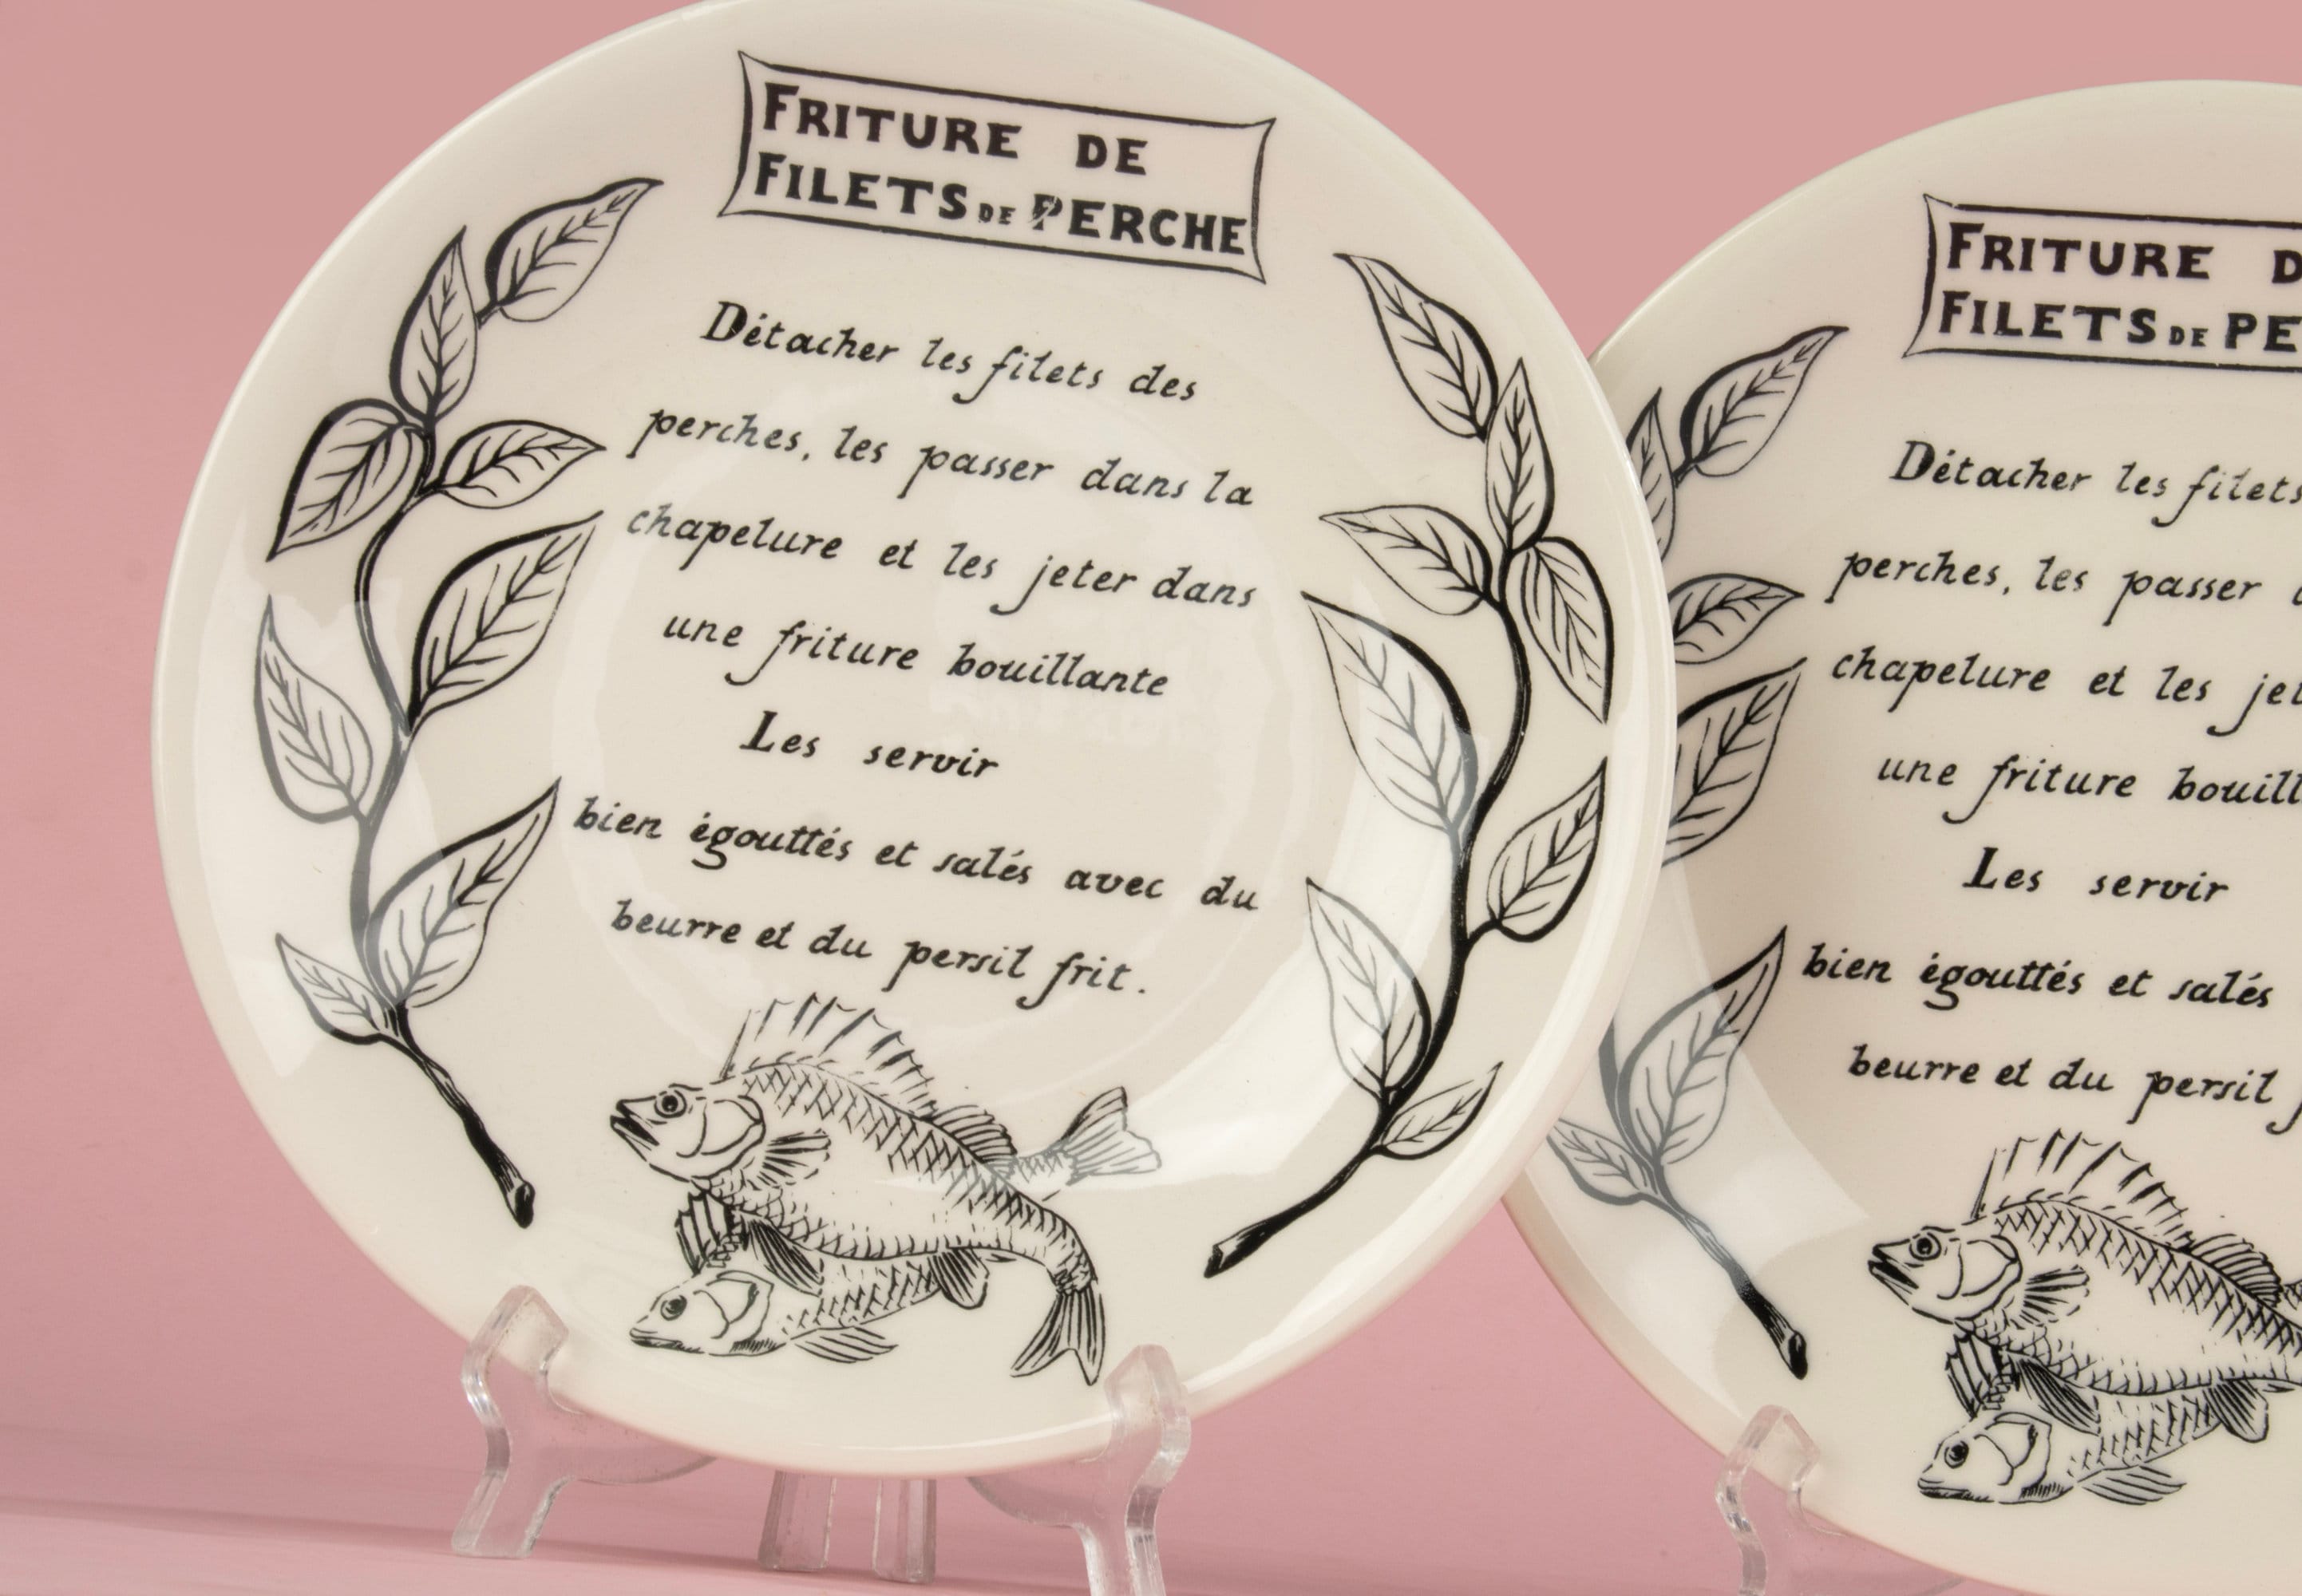 FRITURE DE
FILETS DE PERCHE
Détacher les filets des
perches, les passer dans la
chapelure et les jeter dans
une friture bouillante
Les servir
bien égouttés et salés avec du
beurre et du persil frit.
FRITURE
FILETS DE
Détacher les filets
perches, les passer
chapelure et les
une friture
Les servir
bien égouttés et salés
beurre et du persil